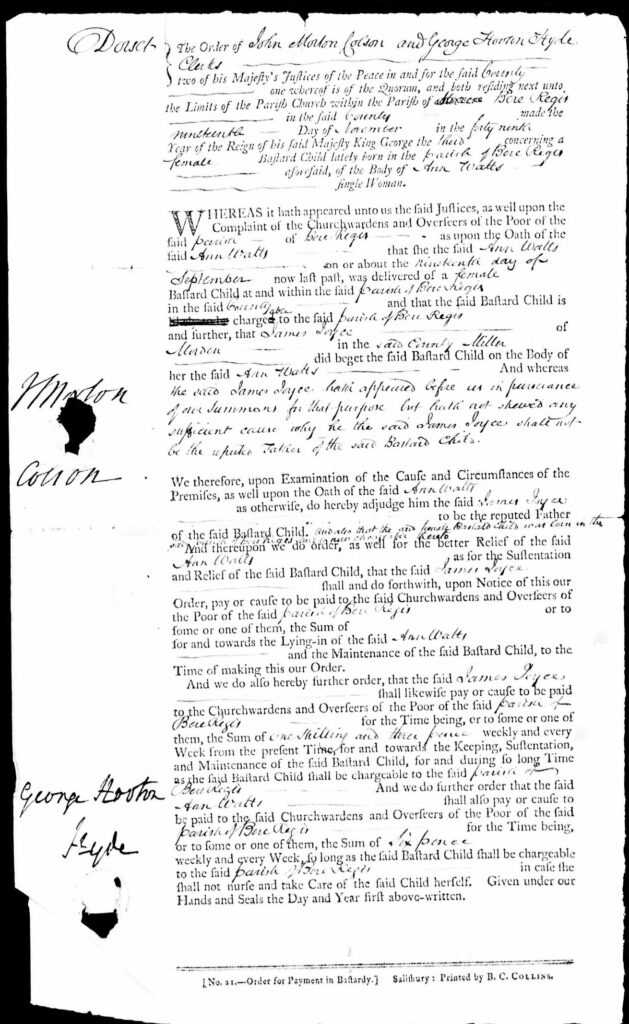 Dorset } The Order of John Morton Colson and George Hooton Hyde
Clerks
two of his Majesty's Justices of the Peace in and for the said County
one whereof is of the Quorum, and both residing next unto
the Limits of the Parish Church within the Parish of Bere Regis
in the said County made the
nineteenth Day of November in the forty ninth
Year of the Reign of his said Majesty King George the third concerning a
female Bastard Child lately born in the parish of Bere Regis
aforesaid, of the Body of Ann Watts
single Woman.
WHEREAS it hath appeared unto us the said Justices, as well upon the
Complaint of the Churchwardens and Overseers of the Poor of the
said parish of Bere Regis as upon the Oath of the
said Ann Watts that she the said Ann Watts
on or about the nineteenth day of
September now last past, was delivered of a female
Bastard Child at and within the said parish of Bere Regis
in the said County and that the said Bastard Child is
charged to the said parish of Bere Regis
and further, that James Joyce of
Morden in the said County Miller
did beget the said Bastard Child on the Body of
her the said Ann Watts And whereas
the said James Joyce hath appeared before us in pursuance
of our Summons for that purpose but hath not shewed any
sufficient cause why he the said James Joyce shall not
be the reputed Father of the said Bastard Child.
J Morton
Colson
We therefore, upon Examination of the Cause and Circumstances of the
Premises, as well upon the Oath of the said Ann Watts
as otherwise, do hereby adjudge him the said James Joyce
to be the reputed Father
of the said Bastard Child. And also that the said female Bastard Child was born in the
said parish of Bere Regis and is now chargeable thereto
And thereupon we do order, as well for the better Relief of the said
Ann Watts as for the Sustentation
and Relief of the said Bastard Child, that the said James Joyce
shall and do forthwith, upon Notice of this our
Order, pay or cause to be paid to the said Churchwardens and Overseers of
the Poor of the said parish of Bere Regis or to
some or one of them, the Sum of
for and towards the Lying-in of the said Ann Watts
and the Maintenance of the said Bastard Child, to the
Time of making this our Order.
And we do also hereby further order, that the said James Joyce
shall likewise pay or cause to be paid
to the Churchwardens and Overseers of the Poor of the said parish of
Bere Regis for the Time being, or to some or one of
them, the Sum of One Shilling and three pence weekly and every
Week from the present Time, for and towards the Keeping, Sustentation,
and Maintenance of the said Bastard Child, for and during so long Time
as the said Bastard Child shall be chargeable to the said parish of
Bere Regis And we do further order that the said
Ann Watts shall also pay or cause to
be paid to the said Churchwardens and Overseers of the Poor of the said
parish of Bere Regis for the Time being,
or to some or one of them, the Sum of Six pence
weekly and every Week, so long as the said Bastard Child shall be chargeable
to the said parish of Bere Regis in case she
shall not nurse and take Care of the said Child herself. Given under our
Hands and Seals the Day and Year first above-written.
George Hooton
Hyde
[No. 21.—Order for Payment in Bastardy.] Salisbury: Printed by B. C. COLLINS.